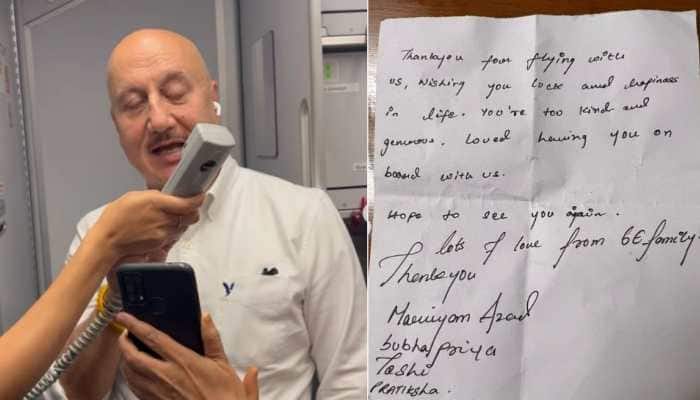 Thankyou for flying with
us, Wishing you Luck and happiness
in life. You're too kind and
generous. Loved having you on
board with us.
Hope to see you again.
lots of love from 6E family.
Thankyou
Mariyam Azad
Subhapriya
Tashi
PRATIKSHA.